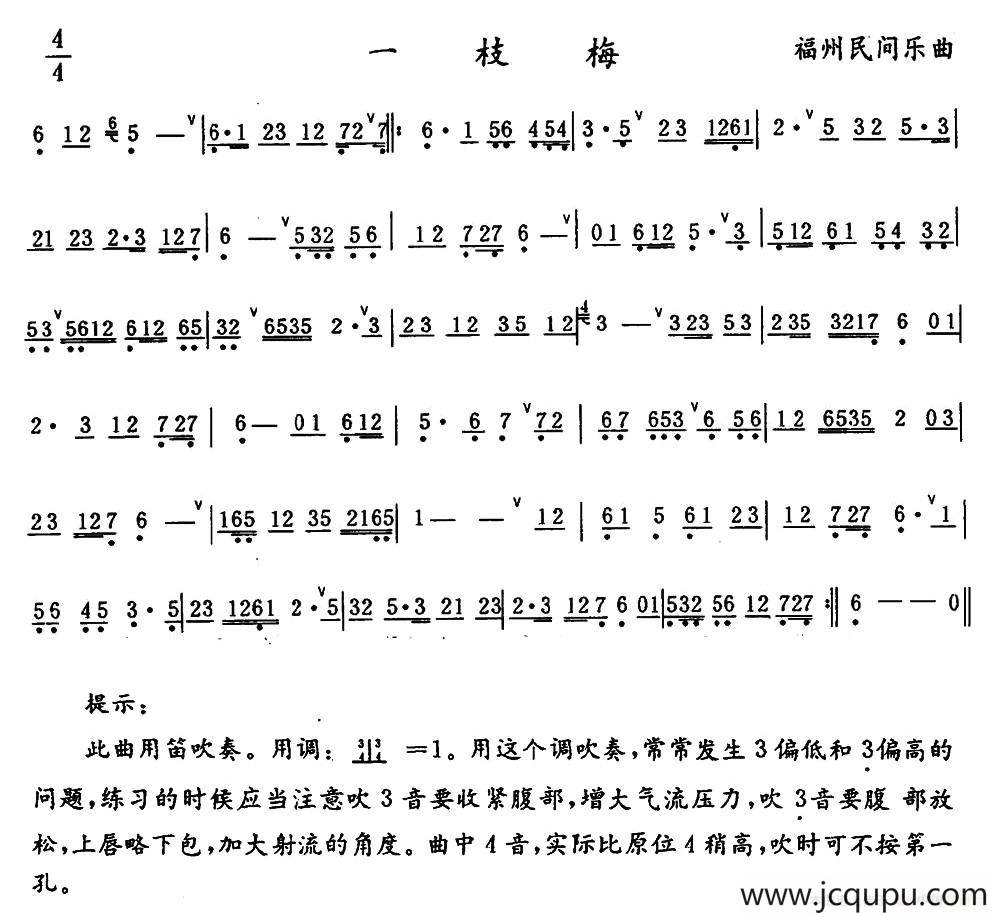 4/4 一枝梅 福州民间乐曲
6 12 6 5 — ∨ | 6·1 23 12 72 ∨ 7 ‖: 6· 1 56 454 | 3· 5 ∨ 23 1261 | 2· ∨ 5 32 5·3 |
21 23 2·3 127 | 6 — ∨ 532 56 | 12 727 6 — ∨ | 01 612 5· ∨ 3 | 512 61 54 32 |
53 ∨ 5612 612 65 | 32 ∨ 6535 2· ∨ 3 | 23 12 35 12 | 4 3 — ∨ 323 53 | 235 3217 6 01 |
2· 3 12 727 | 6 — 01 612 | 5· 6 7 ∨ 72 | 67 653 ∨ 6 56 | 12 6535 2 03 |
23 127 6 — ∨ | 165 12 35 2165 | 1 — — ∨ 12 | 61 5 61 23 | 12 727 6· ∨ 1 |
56 45 3· 5 | 23 1261 2· ∨ 5 | 32 5·3 21 23 | 2·3 127 6 01 | 532 56 12 727 :‖ 6 — — 0 ‖
提示:
此曲用笛吹奏。用调: =1。用这个调吹奏,常常发生3偏低和3̣偏高的
问题,练习的时候应当注意吹3音要收紧腹部,增大气流压力,吹3̣音要腹部放
松,上唇略下包,加大射流的角度。曲中4音,实际比原位4稍高,吹时可不按第一
孔。
www.jcqupu.com